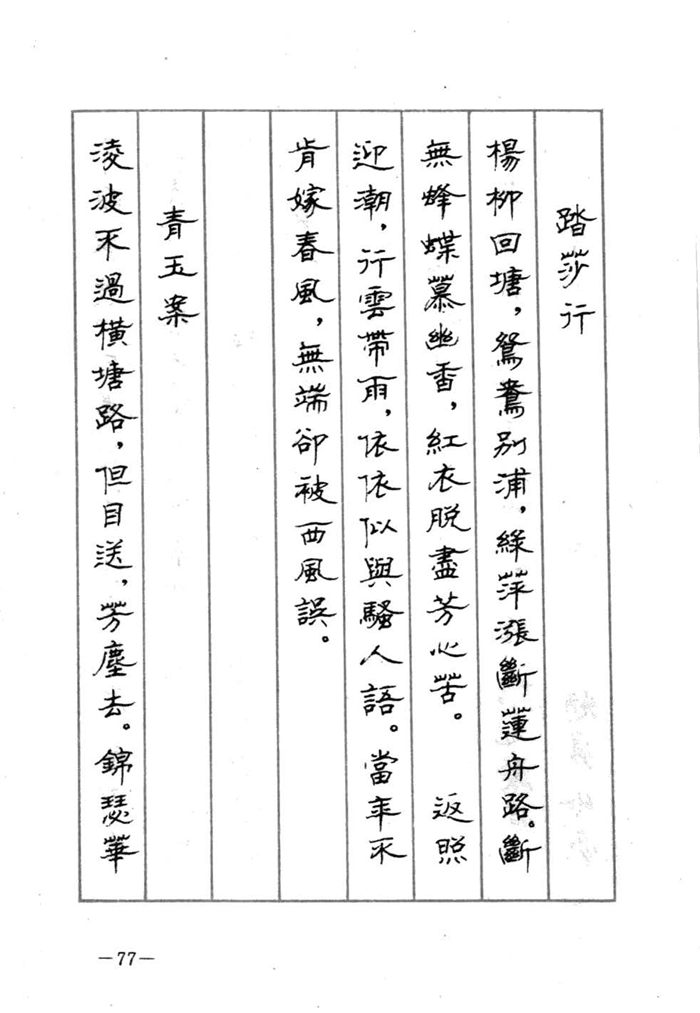 踏莎行
楊柳回塘，鴛鴦別浦，綠萍漲斷蓮舟路。斷
無蜂蝶慕幽香，紅衣脫盡芳心苦。　返照
迎潮，行雲帶雨，依依似與騷人語。當年不
肯嫁春風，無端卻被西風誤。
青玉案
淩波不過橫塘路，但目送，芳塵去。錦瑟華
—77—